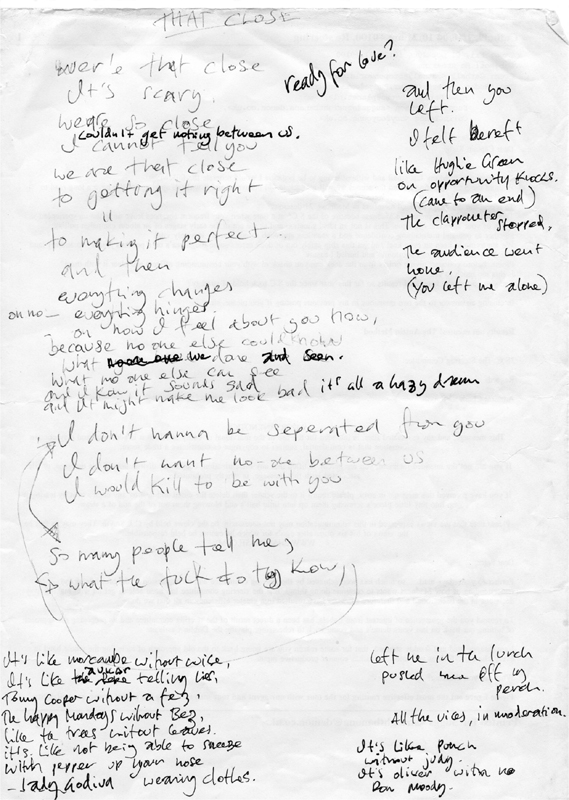 THAT CLOSE
wer'e that close
It's scary.
we're so close
couldn't get nothing between us.
I cannot tell you
we are that close
to getting it right
"
to making it perfect...
and then
everything changes
oh no - everything hinges
- on how I feel about you now,
because no one else could know
what we done and seen.
what no one else can see
and I know it sounds sad
and it might make me look bad it's all a hazy dream
I don't wanna be seperated from you
I don't want no-one between us
I would kill to be with you
So many people tell me,
what the fuck do they know,
ready for love?
and then you
left.
I felt bereft
like Hughie Green
on opportunity knocks.
(came to an end)
The clapometer stopped,
The audience went
home.
(you left me alone)
It's like morecambe without wise,
It's like telling lies,
Tommy Cooper without a fez,
The happy Mondays without Bez,
like the trees without leaves.
it's like not being able to sneeze
with pepper up your nose
- Lady Godiva wearing clothes.
Left me in the lurch
pushed me off my
perch.
All the vices, in moderation.
It's like punch
without judy.
It's oliver with no
Ron Moody.